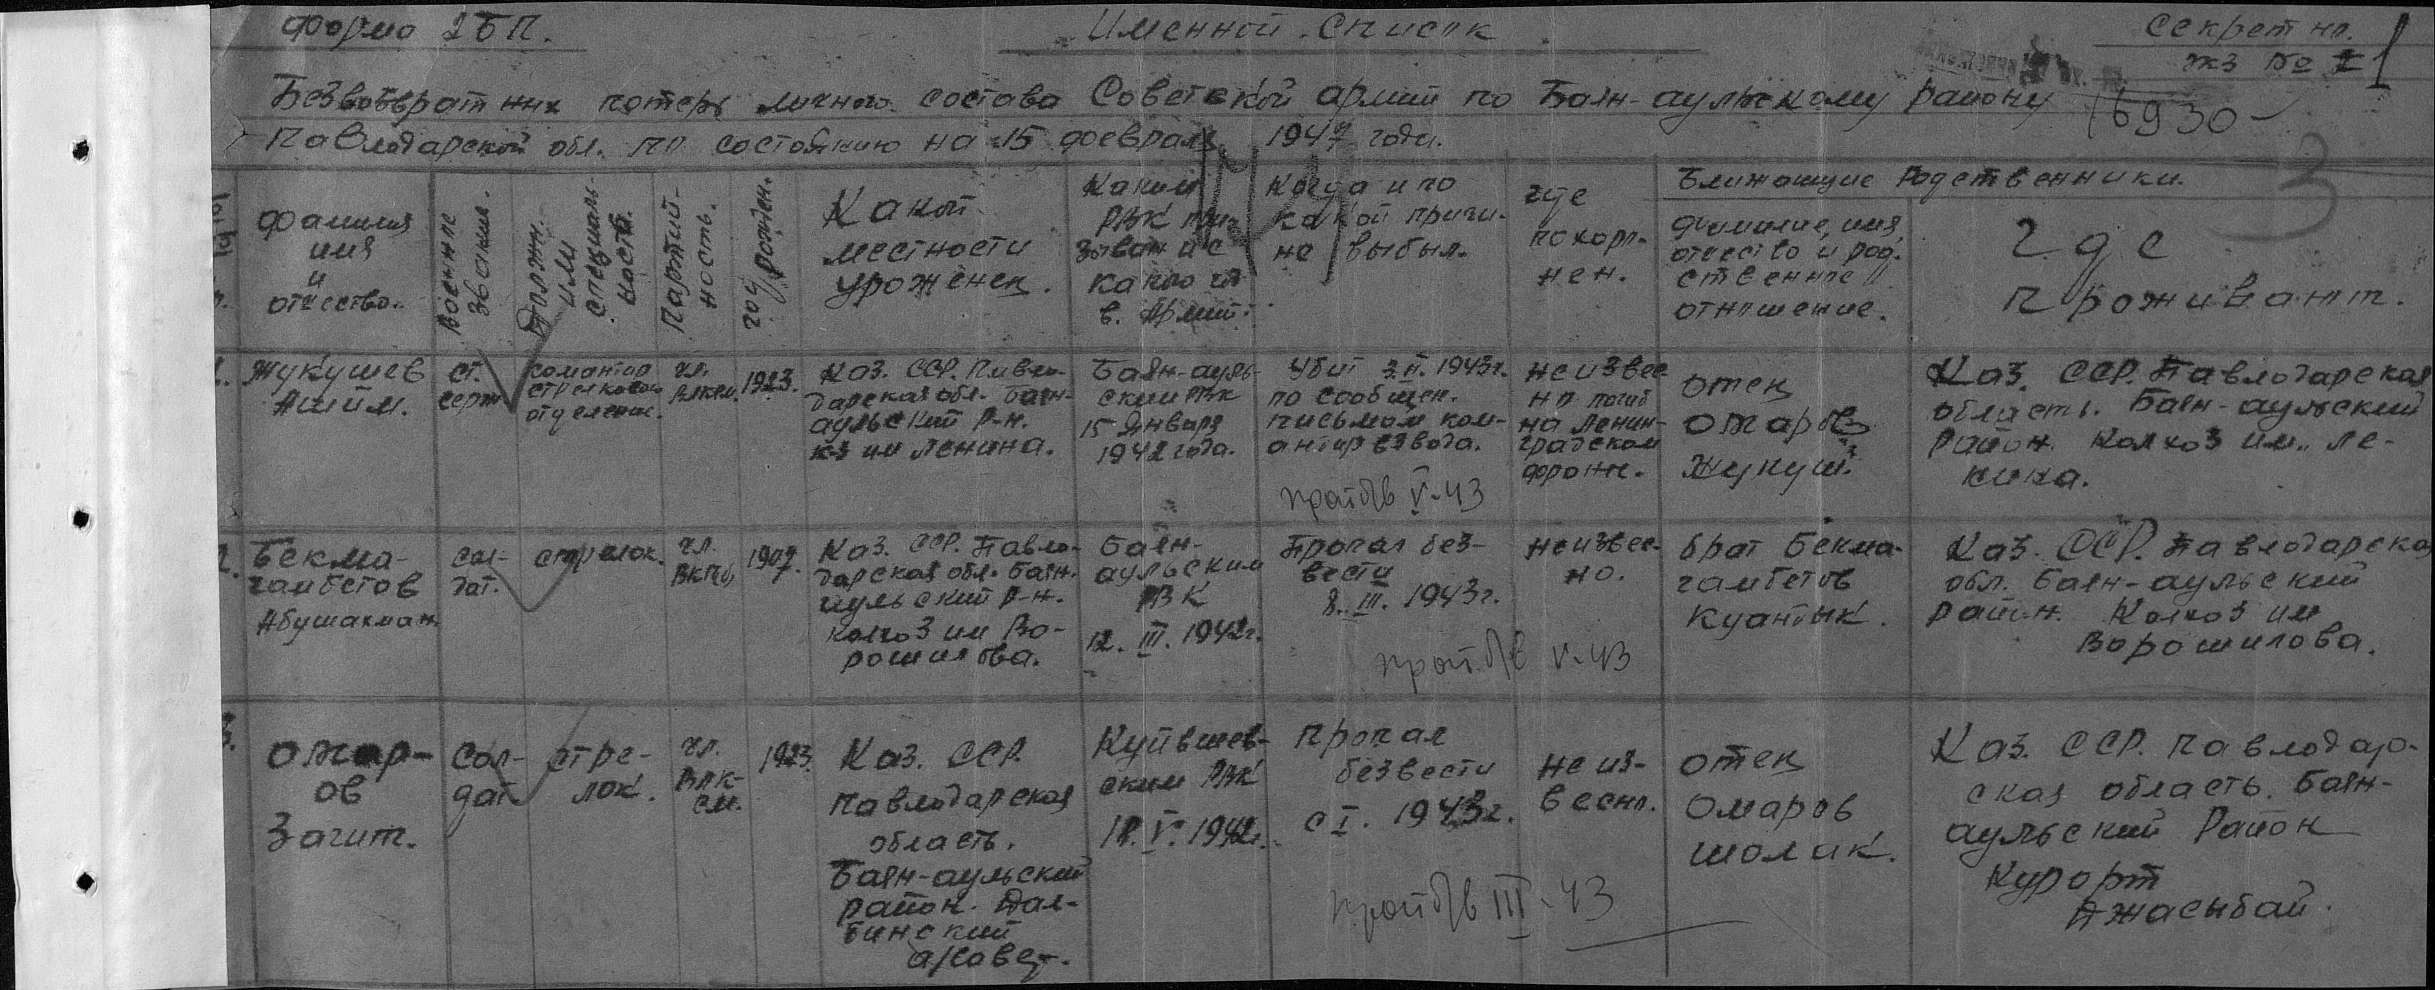 Форма 2БП.
Именной список
Секретно.
экз № 1
1
Безвозвратных потерь личного состава Советской армии по Баян-аульскому району
16930
Павлодарской обл. по состоянию на 15 февраля 1947 года.
3
Фамилия
имя
и
отчество.
Военное
звание.
Должн.
или
специаль-
ность.
Партий-
ность.
год рожден.
Какой
местности
уроженец.
Каким
РВК при-
зван и с
какого
в. Армии.
Когда и по
какой причи-
не выбыл.
где
похоро-
нен.
Ближающие Родственники.
Фамилие, имя
отчество и род.
ственное
отношение.
Где
проживают.
1.
Жукушев
Ашим.
ст.
серж
командир
стрелкового
отделения.
чл.
ВЛКСМ.
1923.
Каз. ССР. Павло-
дарская обл. Баян-
аульский р-н.
к-з им Ленина.
Баян-ауль-
ским РВК
15 Января
1942 года.
Убит 3.II.1943г.
по сообщен.
письмом ком-
андир взвода.
проп б/в V-43
неизвес
но погиб
на Ленин-
градском
фронте.
отец
отарбаев
Жукуш.
Каз. ССР. Павлодарская
область. Баян-аульский
Район. Колхоз им. Ле-
нина.
2.
Бекма-
гамбетов
Абушахман
сол-
дат.
стрелок.
чл.
ВКПб,
1907.
Каз. ССР. Павло-
дарская обл. Баян.
аульский р-н.
колхоз им Во-
рошилова.
Баян-
аульским
РВК
12. III. 1942г.
Пропал без-
вести
8. III. 1943г.
проп. б/в V-43
неизвес-
но.
брат Бекма-
гамбетов
Куантык.
Каз. ССР. Павлодарска
обл. Баян-аульский
район. Колхоз им
Ворошилова.
3.
Омар-
ов
Загит.
Сол-
дат
стре-
лок.
чл.
ВЛК-
СМ.
1923.
Каз. ССР.
Павлодарская
область.
Баян-аульский
район. Дал-
бинский
а/совет.
Куйвшев-
ским РВК
18.V.1942г.
Пропал
безвести
с I. 1943г.
проп б/в III-43
не из-
весно.
отец
Омаров
Шолак.
Каз. ССР. Павлодар-
ская область. Баян-
аульский Район
Курорт
Джасыбай.